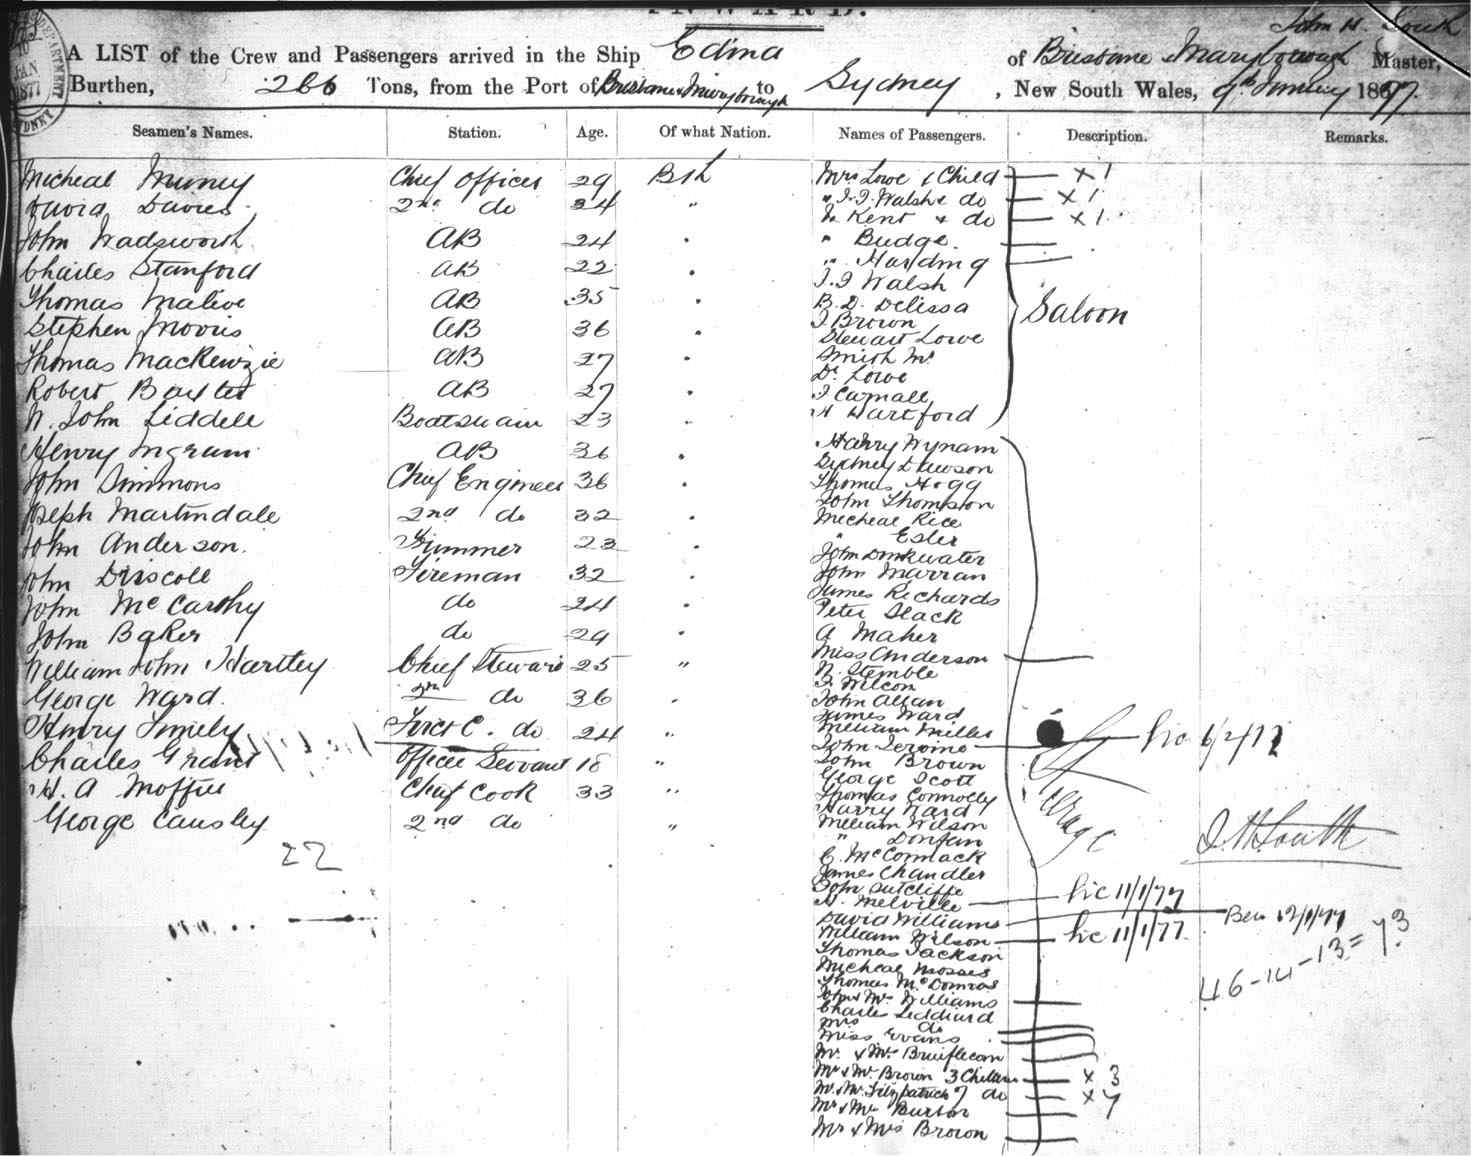 INWARD.
John H. South
A LIST of the Crew and Passengers arrived in the Ship Edina of Brisbane Maryborough Master,
Burthen, 266 Tons, from the Port of Brisbane & Maryborough to Sydney, New South Wales, 9th January 1877.
Seamen's Names. Station. Age. Of what Nation. Names of Passengers. Description. Remarks.
Micheal Chief Officer 29 Bsh
David Davies 2nd do 34 "
John Wadsworth AB 24 "
Charles Stanford AB 22 "
Thomas AB 35 "
Stephen Morris AB 36 "
Thomas MacKenzie AB 27 "
Robert Baxter AB 27 "
W. John Liddell Boatswain 23 "
Henry Ingram AB 36 "
John Simmons Chief Engineer 36 "
Joseph Martindale 2nd do 32 "
John Anderson. 23 "
John Driscoll Fireman 32 "
John McCarthy do 24 "
John Baker do 29 "
William John Hartley Chief Steward 25 "
George Ward. 2nd do 36 "
Henry Fore C. do 24 "
Charles Grant Officer Servant 18 "
H. A Chief Cook 33 "
George Causley 2nd do "
22
Mrs Lowe & Child x 1
" J. J. Walsh & do x 1
" Kent & do x 1
" Budge.
" Harding
J. J Walsh
B. D. Delissa
J. Brown
Stewart Lowe
Smith Mr
Dr Lowe
J Carnall
H Hartford
Saloon
Harry Wynam
Sydney Dawson
Thomas Hogg
John Thompson
Micheal Rice
" Esler
John Drinkwater
John Marran
James Richards
Peter Slack
A Maher
Miss Anderson
W. Stemble
John Allan
James Ward
William Miller
John Jerome 6/2/77
John Brown
George Scott
Thomas Connolly
Harry Ward
William Wilson
" Donfan
C. McCormack
James Chandler
John Sutcliffe
H. Melville 11/1/77
David Williams 12/1/77
William Wilson 11/1/77
Thomas Jackson
Micheal Mosses
Thomas
John & Mrs Williams
Charles Leddiard
Mrs do
Miss Evans
Mr & Mrs
Mr & Mrs Brown 3 Children x 3
Mr & Mrs Fitzpatrick 7 do x 7
Mr & Mrs Burton
Mr & Mrs Brown
Steerage
J. H. South
46-14-13=73